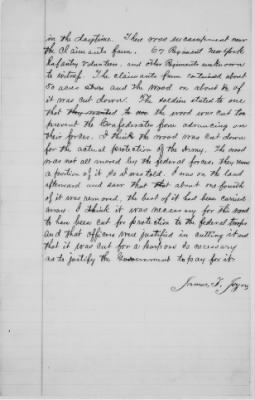 in the daytime. There was encampment near
the Claimants farm. 67 Regiment New York
Infantry Volunteers, and other Regiments unknown
to witness. The claimants farm contained about
50 acres and the wood on about ½ of
it was cut down. The soldiers stated to me
that they wanted to the wood was cut to
prevent the Confederates from advancing on
their forces. I think the wood was cut down
for the actual protection of the Army. The wood
was not all moved by the federal forces, they moved
a portion of it so I was told. I was on the land
afterward and saw that that about one fourth
of it was removed, the best of it had been carried
away. I think it was necessary for the wood
to have been cut for protection to the federal troops
and that officers were justified in cutting it and
that it was cut for a purpose so necessary
as to justify the Government to pay for it
James F.